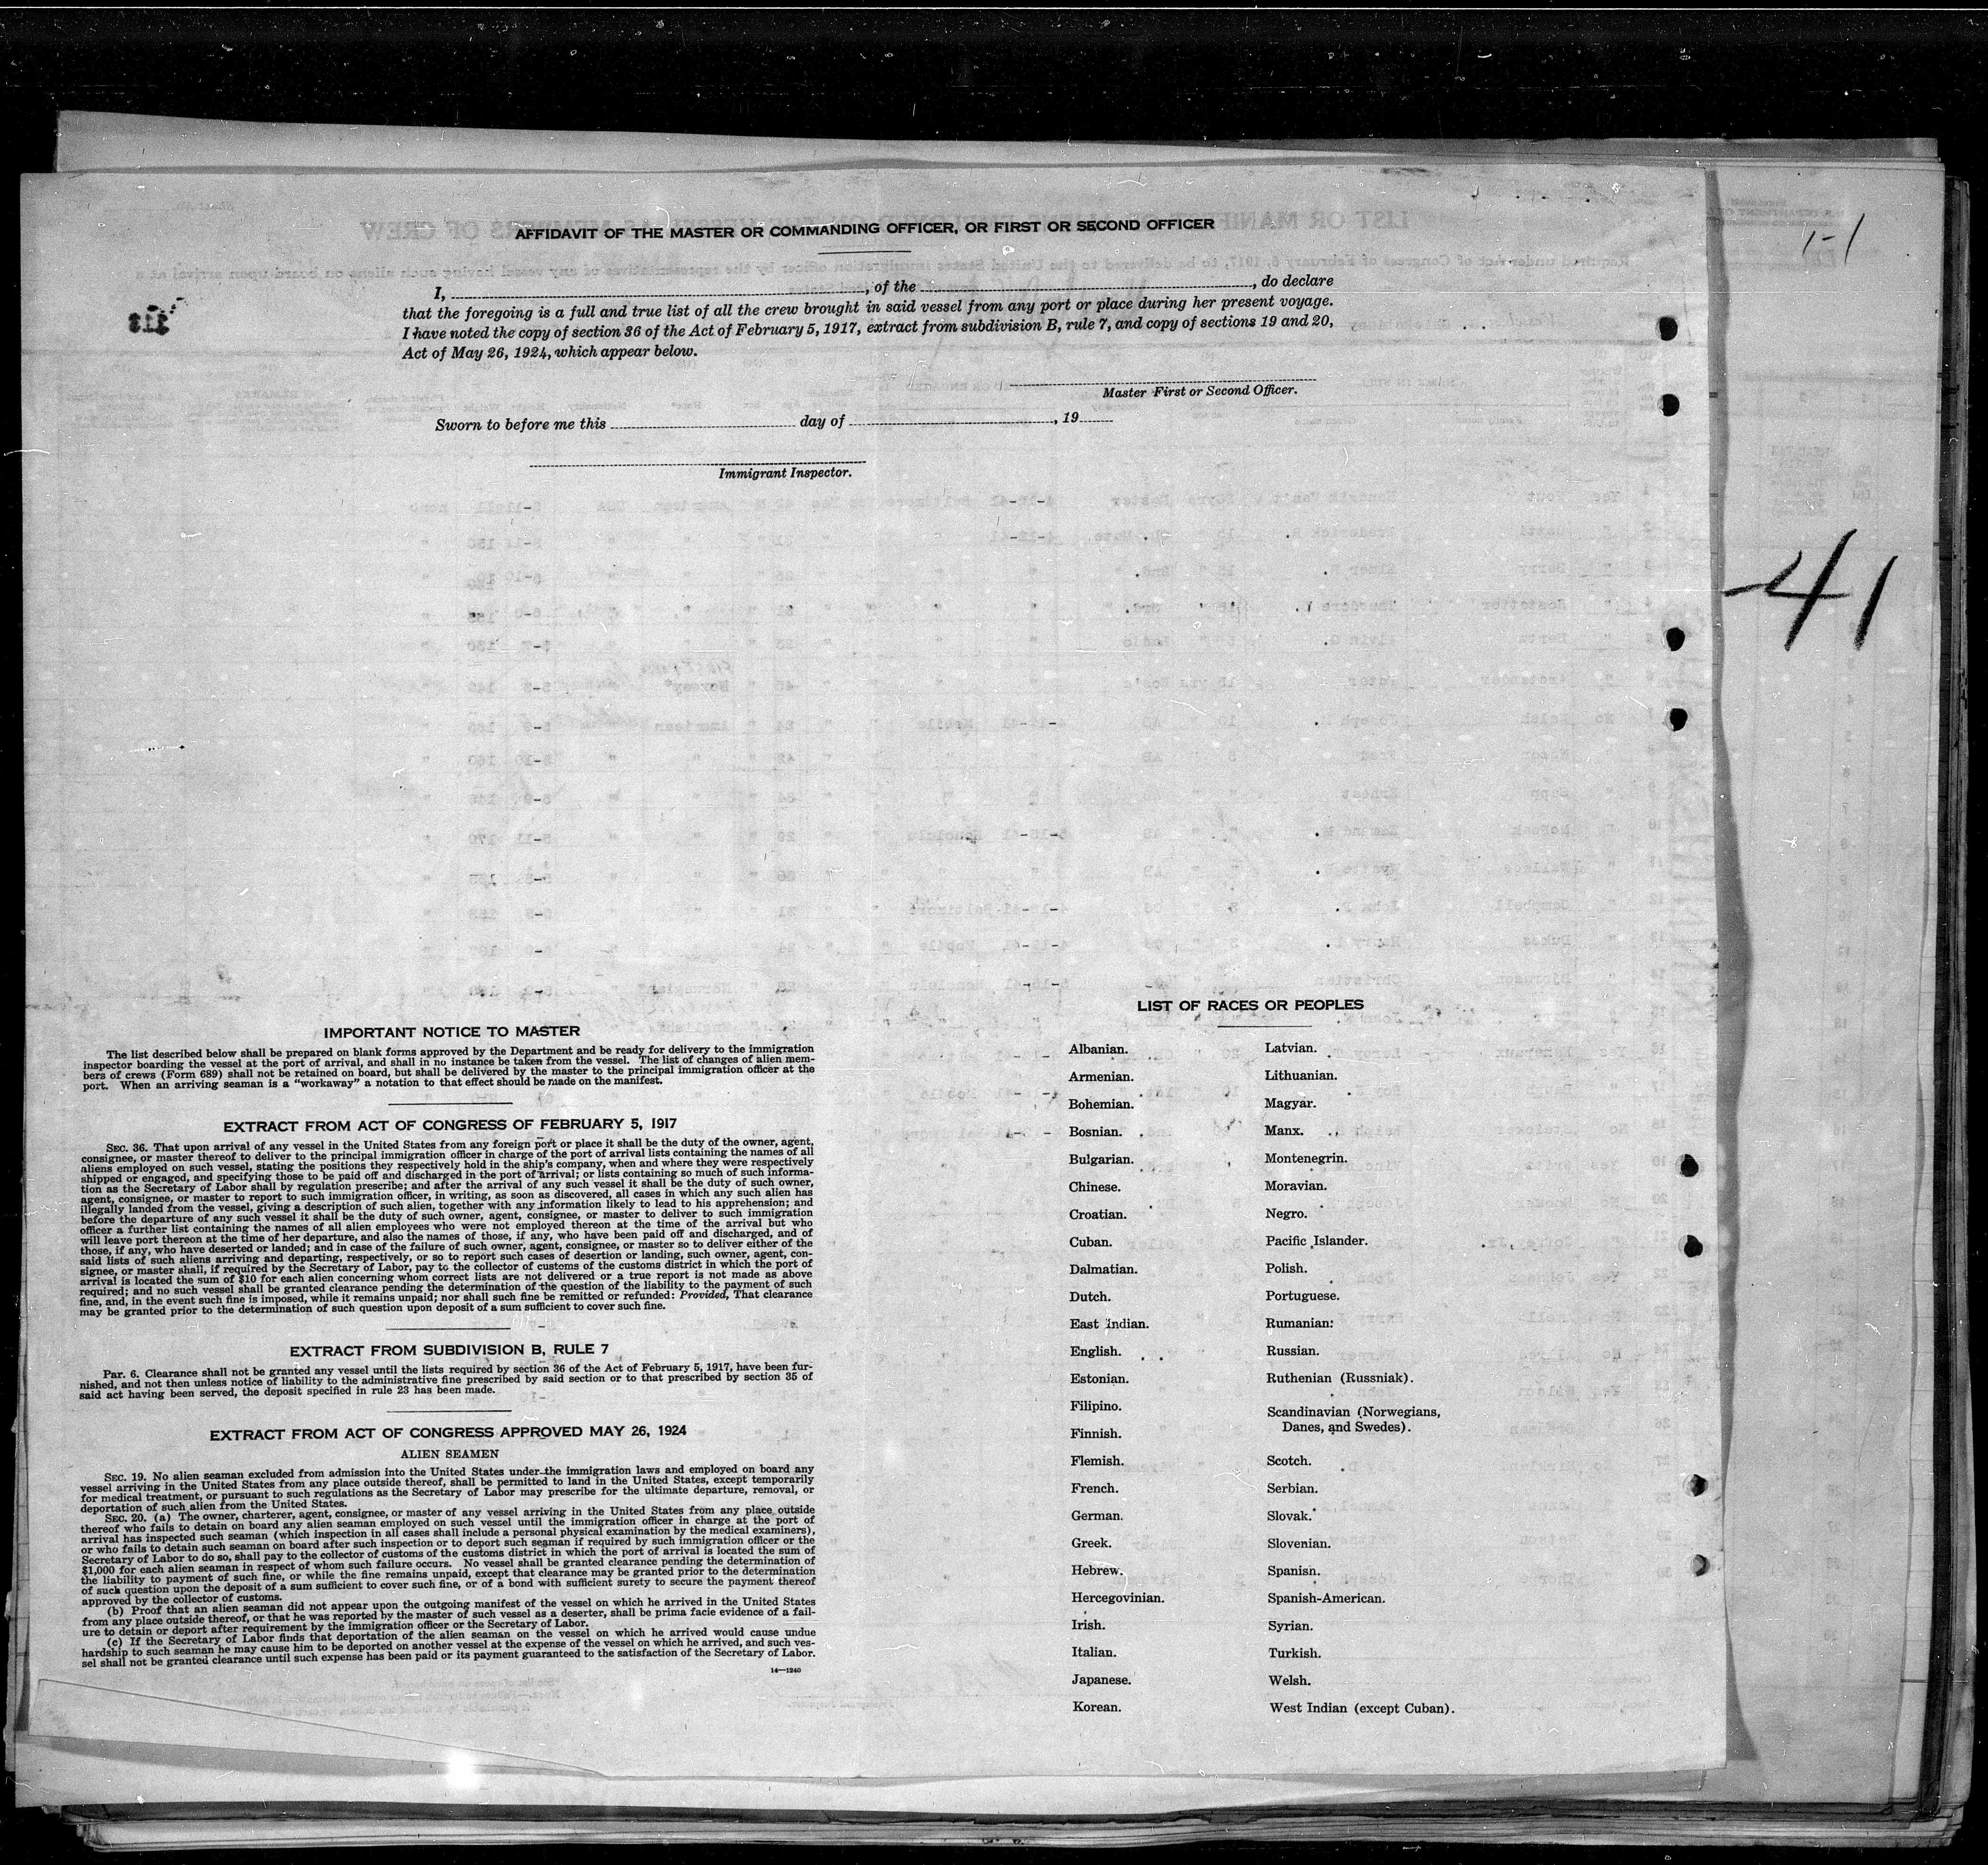 AFFIDAVIT OF THE MASTER OR COMMANDING OFFICER, OR FIRST OR SECOND OFFICER
I, , of the , do declare
that the foregoing is a full and true list of all the crew brought in said vessel from any port or place during her present voyage.
I have noted the copy of section 36 of the Act of February 5, 1917, extract from subdivision B, rule 7, and copy of sections 19 and 20,
Act of May 26, 1924, which appear below.
Master First or Second Officer.
Sworn to before me this day of , 19
Immigrant Inspector.
1-1
-41
IMPORTANT NOTICE TO MASTER
The list described below shall be prepared on blank forms approved by the Department and be ready for delivery to the immigration
inspector boarding the vessel at the port of arrival, and shall in no instance be taken from the vessel. The list of changes of alien mem-
bers of crews (Form 689) shall not be retained on board, but shall be delivered by the master to the principal immigration officer at the
port. When an arriving seaman is a "workaway" a notation to that effect should be made on the manifest.
EXTRACT FROM ACT OF CONGRESS OF FEBRUARY 5, 1917
SEC. 36. That upon arrival of any vessel in the United States from any foreign port or place it shall be the duty of the owner, agent,
consignee, or master thereof to deliver to the principal immigration officer in charge of the port of arrival lists containing the names of all
aliens employed on such vessel, stating the positions they respectively hold in the ship's company, when and where they were respectively
shipped or engaged, and specifying those to be paid off and discharged in the port of arrival; or lists containing so much of such informa-
tion as the Secretary of Labor shall by regulation prescribe; and after the arrival of any such vessel it shall be the duty of such owner,
agent, consignee, or master to report to such immigration officer, in writing, as soon as discovered, all cases in which any such alien has
illegally landed from the vessel, giving a description of such alien, together with any information likely to lead to his apprehension; and
before the departure of any such vessel it shall be the duty of such owner, agent, consignee, or master to deliver to such immigration
officer a further list containing the names of all alien employees who were not employed thereon at the time of the arrival but who
will leave port thereon at the time of her departure, and also the names of those, if any, who have been paid off and discharged, and of
those, if any, who have deserted or landed; and in case of the failure of such owner, agent, consignee, or master so to deliver either of the
said lists of such aliens arriving and departing, respectively, or so to report such cases of desertion or landing, such owner, agent, con-
signee, or master shall, if required by the Secretary of Labor, pay to the collector of customs of the customs district in which the port of
arrival is located the sum of $10 for each alien concerning whom correct lists are not delivered or a true report is not made as above
required; and no such vessel shall be granted clearance pending the determination of the question of the liability to the payment of such
fine, and, in the event such fine is imposed, while it remains unpaid; nor shall such fine be remitted or refunded: Provided, That clearance
may be granted prior to the determination of such question upon deposit of a sum sufficient to cover such fine.
EXTRACT FROM SUBDIVISION B, RULE 7
Par. 6. Clearance shall not be granted any vessel until the lists required by section 36 of the Act of February 5, 1917, have been fur-
nished, and not then unless notice of liability to the administrative fine prescribed by said section or to that prescribed by section 35 of
said act having been served, the deposit specified in rule 23 has been made.
EXTRACT FROM ACT OF CONGRESS APPROVED MAY 26, 1924
ALIEN SEAMEN
SEC. 19. No alien seaman excluded from admission into the United States under the immigration laws and employed on board any
vessel arriving in the United States from any place outside thereof, shall be permitted to land in the United States, except temporarily
for medical treatment, or pursuant to such regulations as the Secretary of Labor may prescribe for the ultimate departure, removal, or
deportation of such alien from the United States.
SEC. 20. (a) The owner, charterer, agent, consignee, or master of any vessel arriving in the United States from any place outside
thereof who fails to detain on board any alien seaman employed on such vessel until the immigration officer in charge at the port of
arrival has inspected such seaman (which inspection in all cases shall include a personal physical examination by the medical examiners),
or who fails to detain such seaman on board after such inspection or to deport such seaman if required by such immigration officer or the
Secretary of Labor to do so, shall pay to the collector of customs of the customs district in which the port of arrival is located the sum of
$1,000 for each alien seaman in respect of whom such failure occurs. No vessel shall be granted clearance pending the determination of
the liability to payment of such fine, or while the fine remains unpaid, except that clearance may be granted prior to the determination
of such question upon the deposit of a sum sufficient to cover such fine, or of a bond with sufficient surety to secure the payment thereof
approved by the collector of customs.
(b) Proof that an alien seaman did not appear upon the outgoing manifest of the vessel on which he arrived in the United States
from any place outside thereof, or that he was reported by the master of such vessel as a deserter, shall be prima facie evidence of a fail-
ure to detain or deport after requirement by the immigration officer or the Secretary of Labor.
(c) If the Secretary of Labor finds that deportation of the alien seaman on the vessel on which he arrived would cause undue
hardship to such seaman he may cause him to be deported on another vessel at the expense of the vessel on which he arrived, and such ves-
sel shall not be granted clearance until such expense has been paid or its payment guaranteed to the satisfaction of the Secretary of Labor.
14—1240
LIST OF RACES OR PEOPLES
Albanian.
Armenian.
Bohemian.
Bosnian.
Bulgarian.
Chinese.
Croatian.
Cuban.
Dalmatian.
Dutch.
East Indian.
English.
Estonian.
Filipino.
Finnish.
Flemish.
French.
German.
Greek.
Hebrew.
Hercegovinian.
Irish.
Italian.
Japanese.
Korean.
Latvian.
Lithuanian.
Magyar.
Manx.
Montenegrin.
Moravian.
Negro.
Pacific Islander.
Polish.
Portuguese.
Rumanian.
Russian.
Ruthenian (Russniak).
Scandinavian (Norwegians,
Danes, and Swedes).
Scotch.
Serbian.
Slovak.
Slovenian.
Spanish.
Spanish-American.
Syrian.
Turkish.
Welsh.
West Indian (except Cuban).